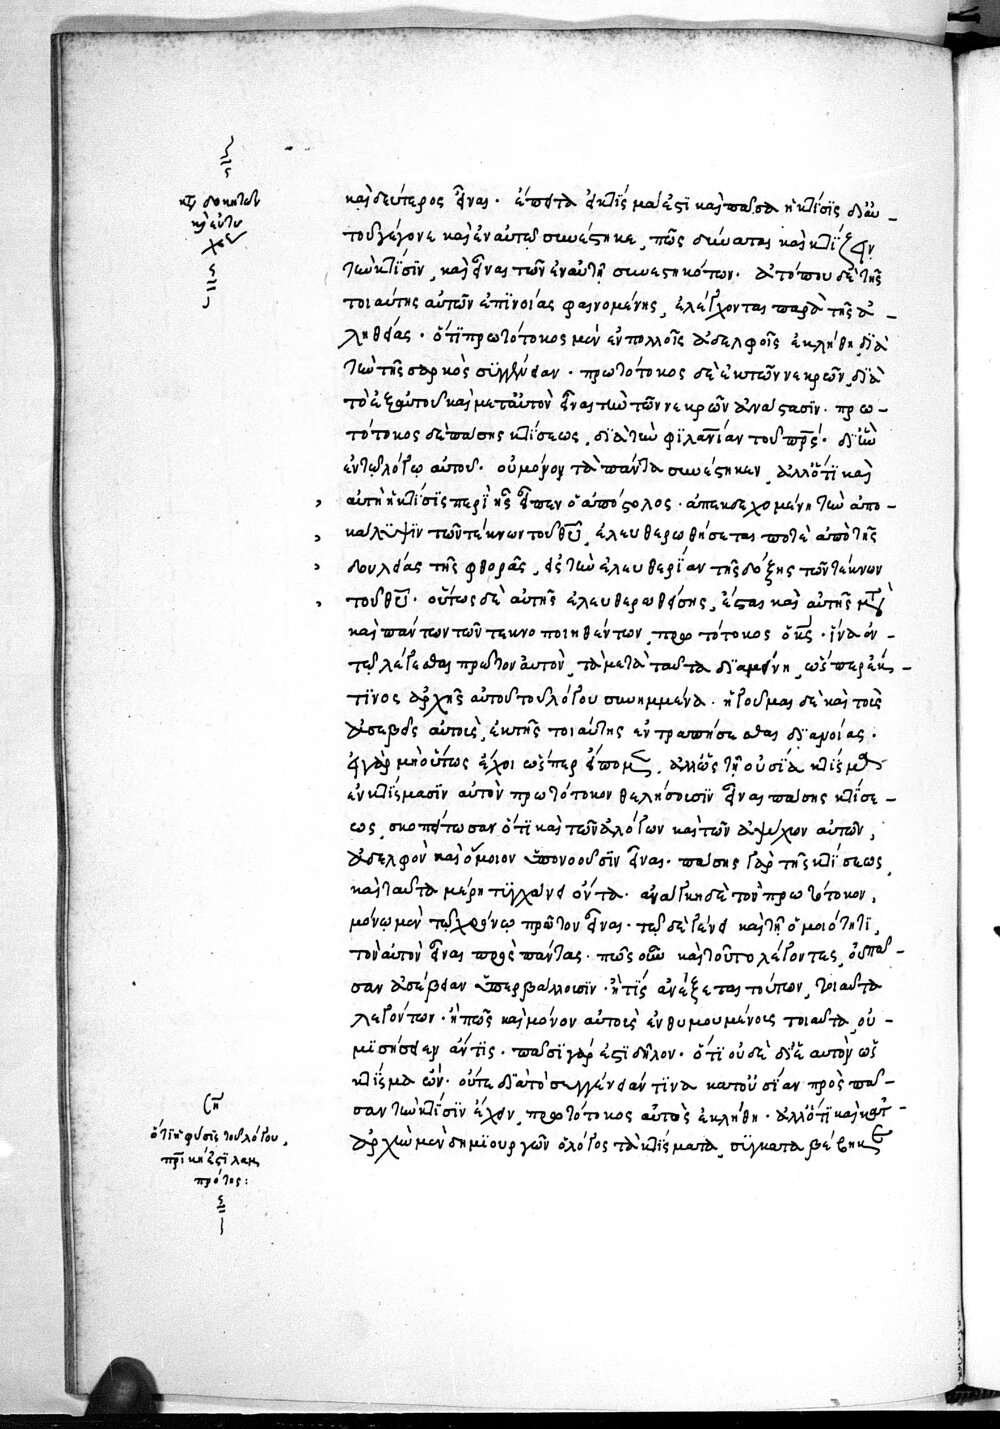 καὶ δεύτερος εἶναι. ἐπεὶ τὰ ἐκτίσμα ἐστι καὶ πᾶσα ἡ κτίσις δι' αὐ-
τοῦ γέγονε καὶ ἐν αὐτῶ συνέστηκε, πῶς δύναται καὶ κτίζειν
τὴν κτίσιν, καὶ εἶναι τῶν ἐν αὐτῆ συνεστηκότων. ἀτόπου δὲ τῆς
τοιαύτης αὐτῶν ἐπινοίας φαινομένης, ἐλέγχονται παρὰ τῆς ἀ-
ληθείας. ὅτι πρωτότοκος μὲν ἐν πολλοῖς ἀδελφοῖς ἐκλήθη, διὰ
τὴν τῆς σαρκὸς συγγένειαν. πρωτότοκος δὲ ἐκ τῶν νεκρῶν, διὰ
τὸ ἐξ αὐτοῦ καὶ μετ' αὐτὸν εἶναι τὴν τῶν νεκρῶν ἀνάστασιν. πρω-
τότοκος δὲ πάσης κτίσεως, διὰ τὴν φιλανίαν τοῦ πρς. δι' ἣν
ἐν τῶ λόγω αὐτοῦ. οὐ μόνον τὰ πάντα συνέστηκεν, ἀλλ' ὅτι καὶ
αὐτὴ ἡ κτίσις περὶ ἧς εἶπεν ὁ ἀπόστολος. ἀπεκδεχομένη τὴν ἀπο-
κάλυψιν τῶν τέκνων τοῦ θυ, ἐλευθερωθήσεται ποτὲ ἀπὸ τῆς
δουλείας τῆς φθορᾶς, εἰς τὴν ἐλευθερίαν τῆς δόξης τῶν τέκνων
τοῦ θυ. οὕτως δὲ αὐτῆς ἐλευθερωθείσης, ἔσται καὶ αὐτῆς μτ
καὶ πάντων τῶν τεκνοποιηθέντων, πρωτότοκος ὁ κς. ἵνα ἐν
τῶ λέγεσθαι πρῶτον αὐτὸν, τὰ μετὰ ταῦτα διαμείνη, ὥσπερ ἔκ
τινος ἀρχῆς αὐτοῦ τοῦ λόγου συνημμένα. ἡγοῦμαι δὲ καὶ τοὺς
ἀσεβεῖς αὐτοὺς, ἐκ τῆς τοιαύτης ἐντραπήσεσθαι διανοίας.
εἰ γὰρ μὴ οὕτως ἔχοι ὥσπερ εἴπομεν, ἀλλ' ὡς τῆ οὐσία κτίσμα
ἐν κτίσμασιν αὐτὸν πρωτότοκον θελήσουσιν εἶναι πάσης κτίσε-
ως, σκοπείτωσαν ὅτι καὶ τῶν ἀλόγων καὶ τῶν ἀψύχων αὐτῶν,
ἀδελφὸν καὶ ὅμοιον ὑπονοοῦσιν εἶναι. πάσης γὰρ τῆς κτίσεως,
καὶ ταῦτα μέρη τυγχάνει ὄντα. ἀνάγκη δὲ τὸν πρωτότοκον,
μόνω μὲν τῶ χρόνω πρῶτον εἶναι. τῶ δὲ γένει καὶ τῆ ὁμοιότητι,
τὸν αὐτὸν εἶναι πρὸς πάντας. πῶς οὖν καὶ τοῦτο λέγοντες, οὐ πᾶ-
σαν ἀσέβειαν ὑπερβάλλουσιν. ἢ τίς ἀνέξεται τούτων, τοιαῦτα
λεγόντων. ἢ πῶς καὶ μόνον αὐτοὺς ἐνθυμουμένους τοιαῦτα, οὐ
μισήσειεν ἄν τις. πᾶσι γάρ ἐστι δῆλον. ὅτι οὐδὲ δι' ἑαυτὸν ὡς
κτίσμα ὢν. οὔτε διὰ τὸ συγγένειάν τινα κατ' οὐσίαν πρὸς πᾶ-
σαν τὴν κτίσιν ἔχειν, πρωτότοκος αὐτὸς ἐκλήθη. ἀλλ' ὅτι καὶ κατ'
ἀρχὴν μὲν δημιουργῶν ὁ λόγος τὰ κτίσματα, συγκαταβέβηκε
ὅτι ἡ φύσις τοῦ λόγου,